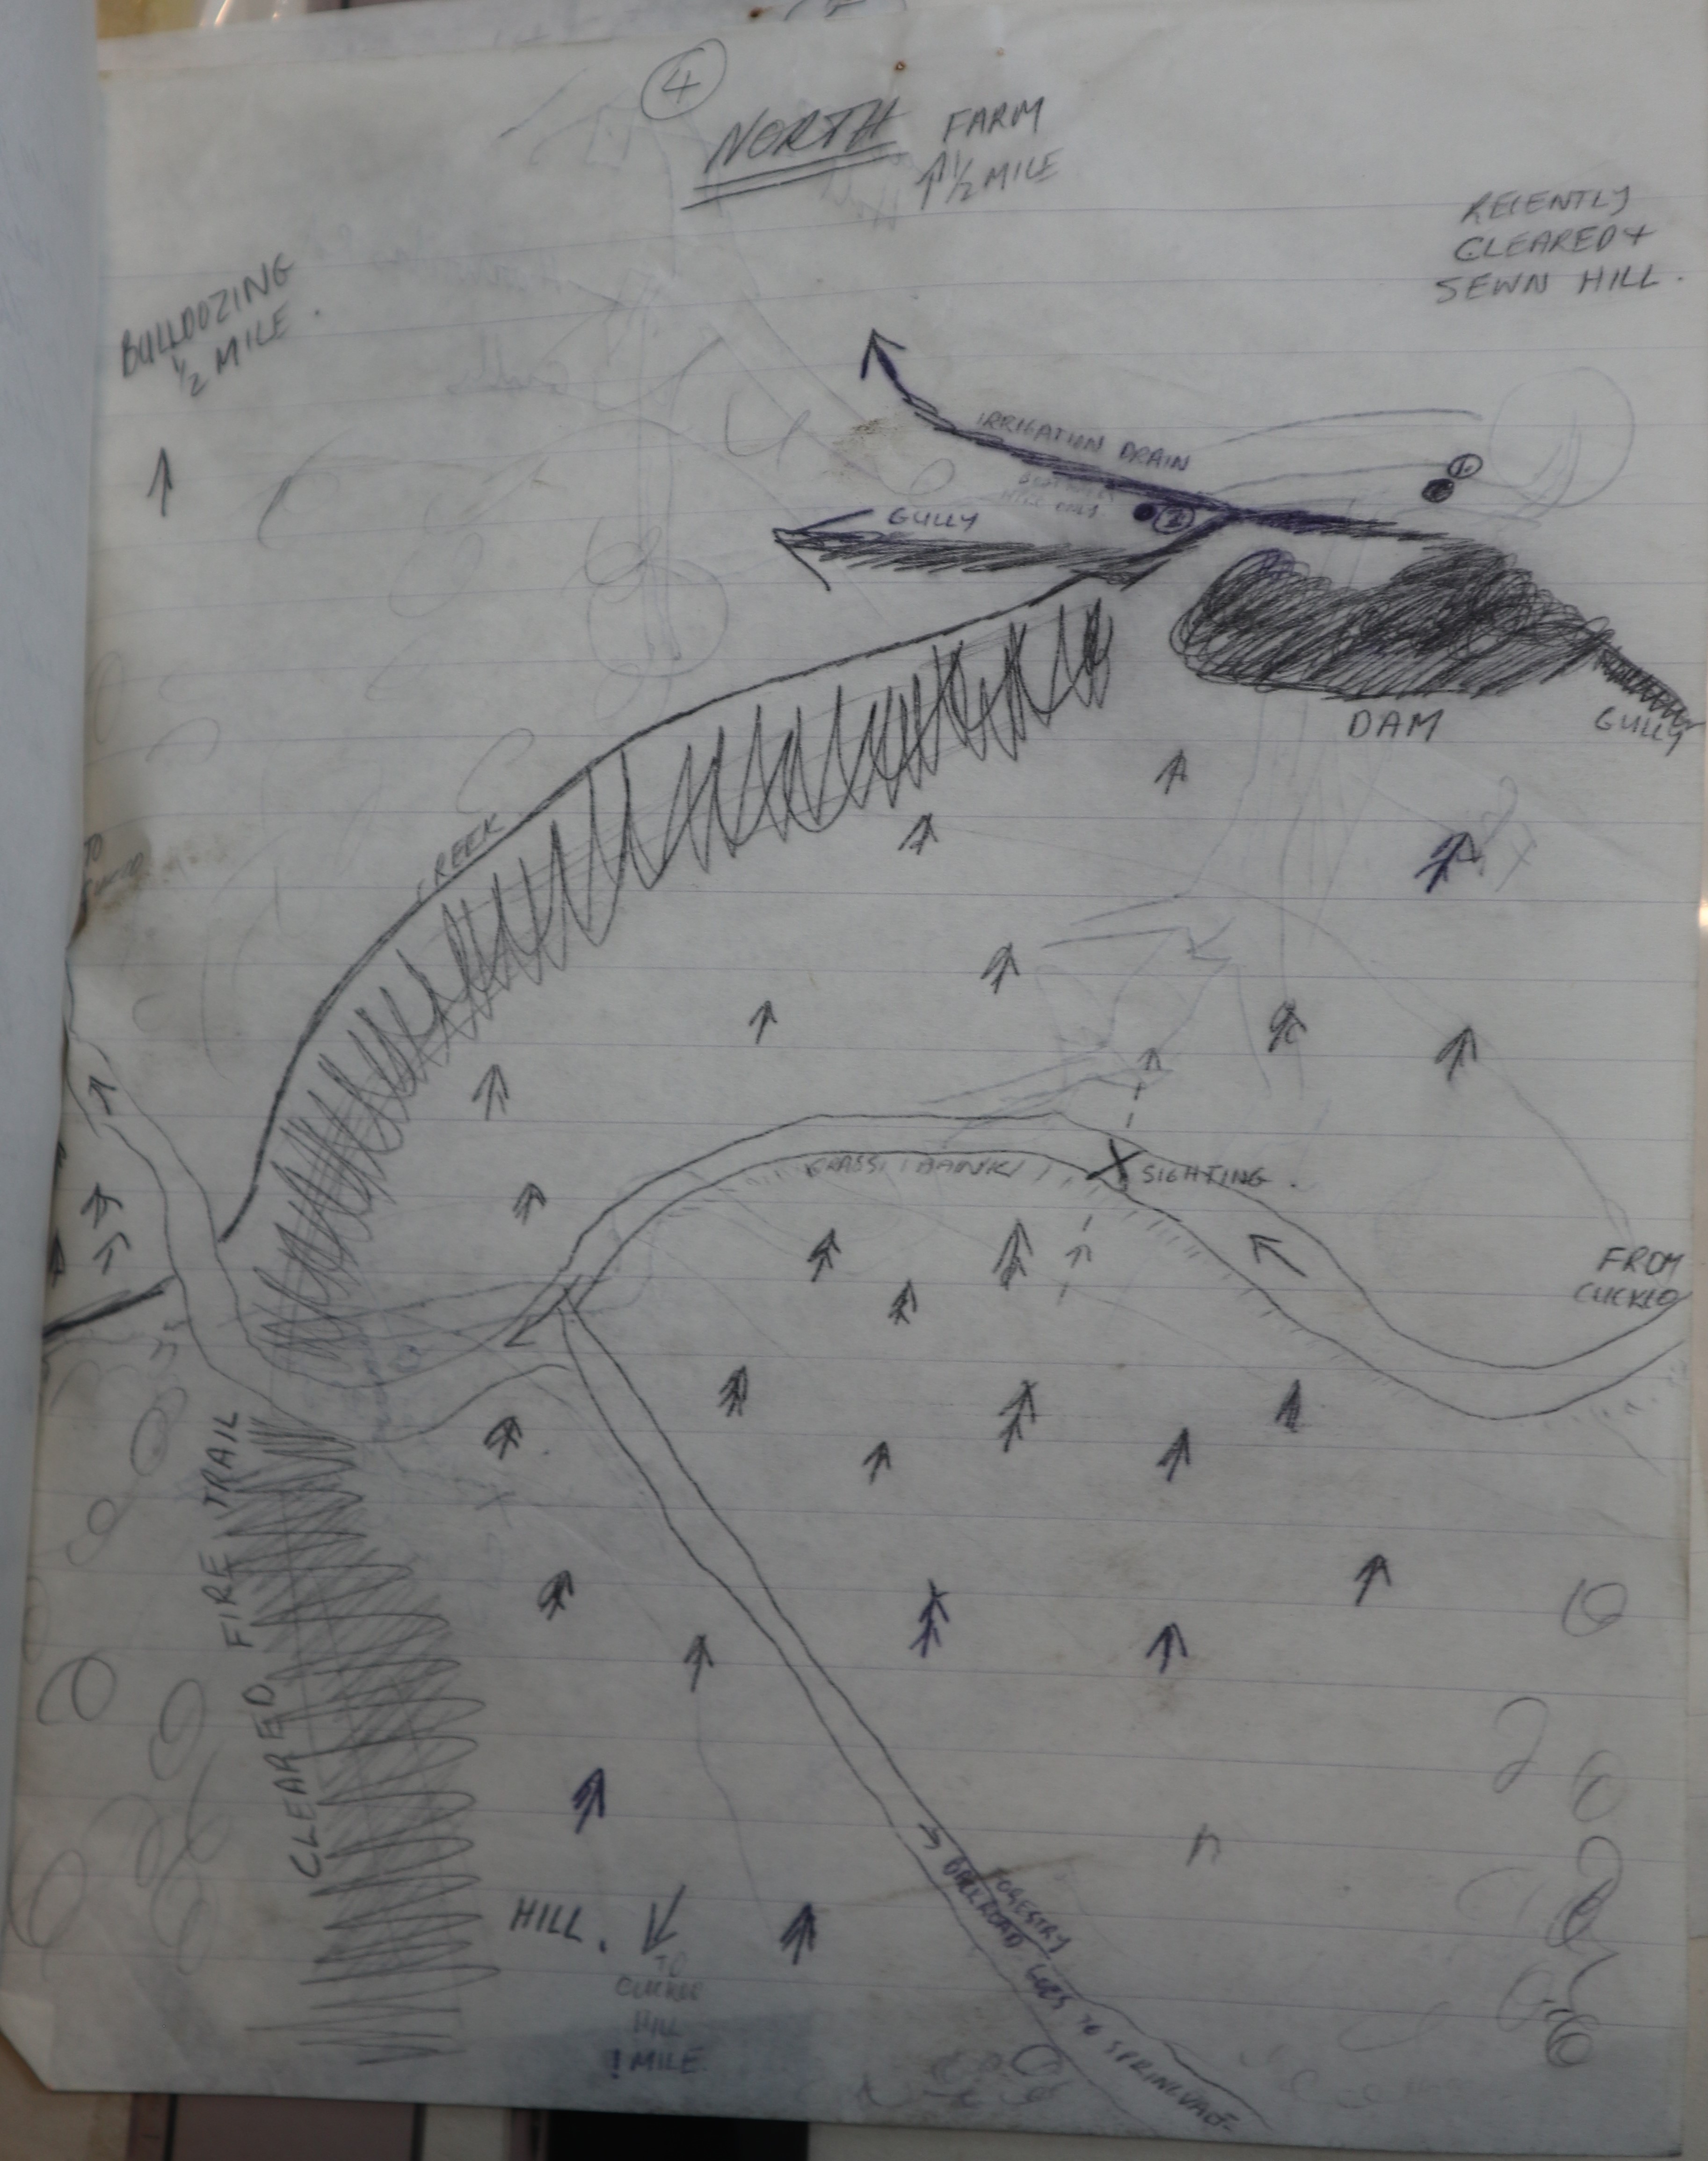 4
NORTH
FARM
↑ 1/2 MILE
RECENTLY
CLEARED +
SEWN HILL.
BULLDOZING
1/2 MILE.
IRRIGATION DRAIN
1
2
GULLY
DAM
GULLY
CREEK
TO
GRASSY BANK
X SIGHTING.
FROM
CUCKOO
CLEARED FIRE TRAIL
HILL.
TO
CUCKOO
HILL
1 MILE.
FORESTRY
BACKROAD GOES TO SPRINGVALE